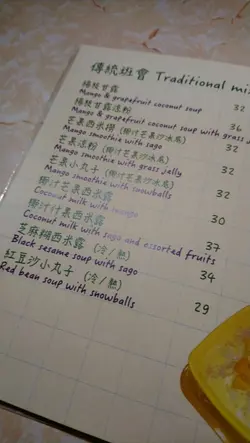 傳統逛會 Traditional mi
楊枝甘露
Mango & grapefruit coconut soup 32
楊枝甘露涼粉
Mango & grapefruit coconut soup with grass j 36
芒果西米撈 (椰汁芒果沙冰底)
Mango smoothie with sago 32
芒果涼粉 (椰汁芒果沙冰底)
Mango smoothie with grass jelly 32
芒果小丸子 (椰汁芒果沙冰底)
Mango smoothie with snowballs 32
椰汁芒果西米露
Coconut milk with mango 30
椰汁什果西米露
Coconut milk with sago and assorted fruits 37
芝麻糊西米露 (冷/熱)
Black sesame soup with sago 34
紅豆沙小丸子 (冷/熱)
Red bean soup with snowballs 29